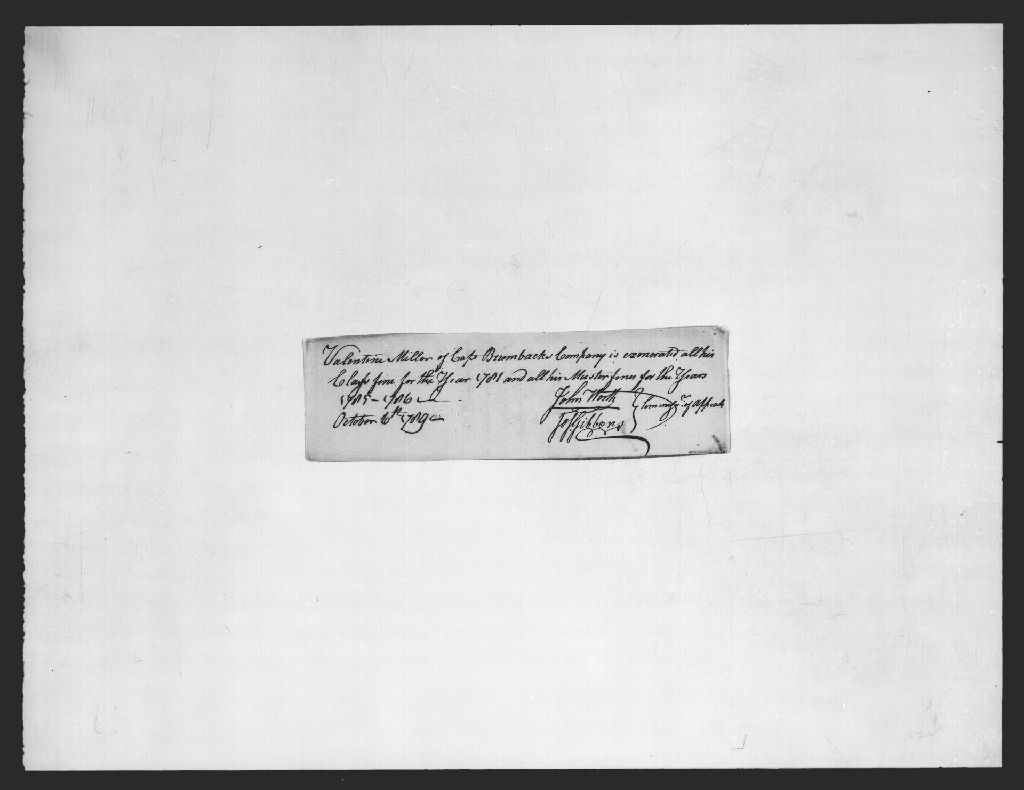 Valentine Miller of Capt Brumbacks Company is exonerated all his
Class fine for the Year 1781 and all his Muster fines for the Years
1785 - 1786
John Worth
October 6th 1789
Jos Gibbons
Commissrs of Appeals